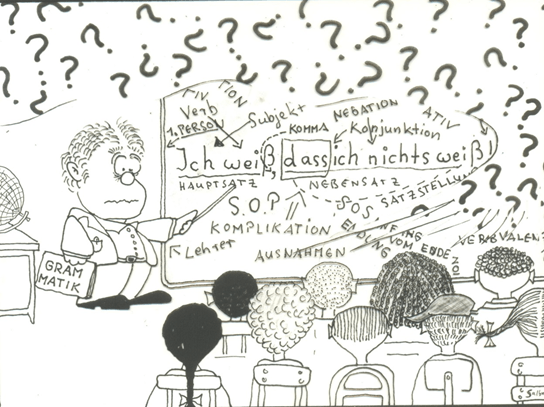 TIV
TION
Verb
1. PERSON
Subjekt
KOMMA
NEGATION
Konjunktion
ATIV
Ich weiß, dass ich nichts weiß!
HAUPTSATZ
NEBENSATZ
SATZSTELLU
S.O.P
SOS
KOMPLIKATION
Lehrer
AUSNAHMEN
ENDUNG
VOM ENDE
VERBVALENZ
GRAM
MATIK